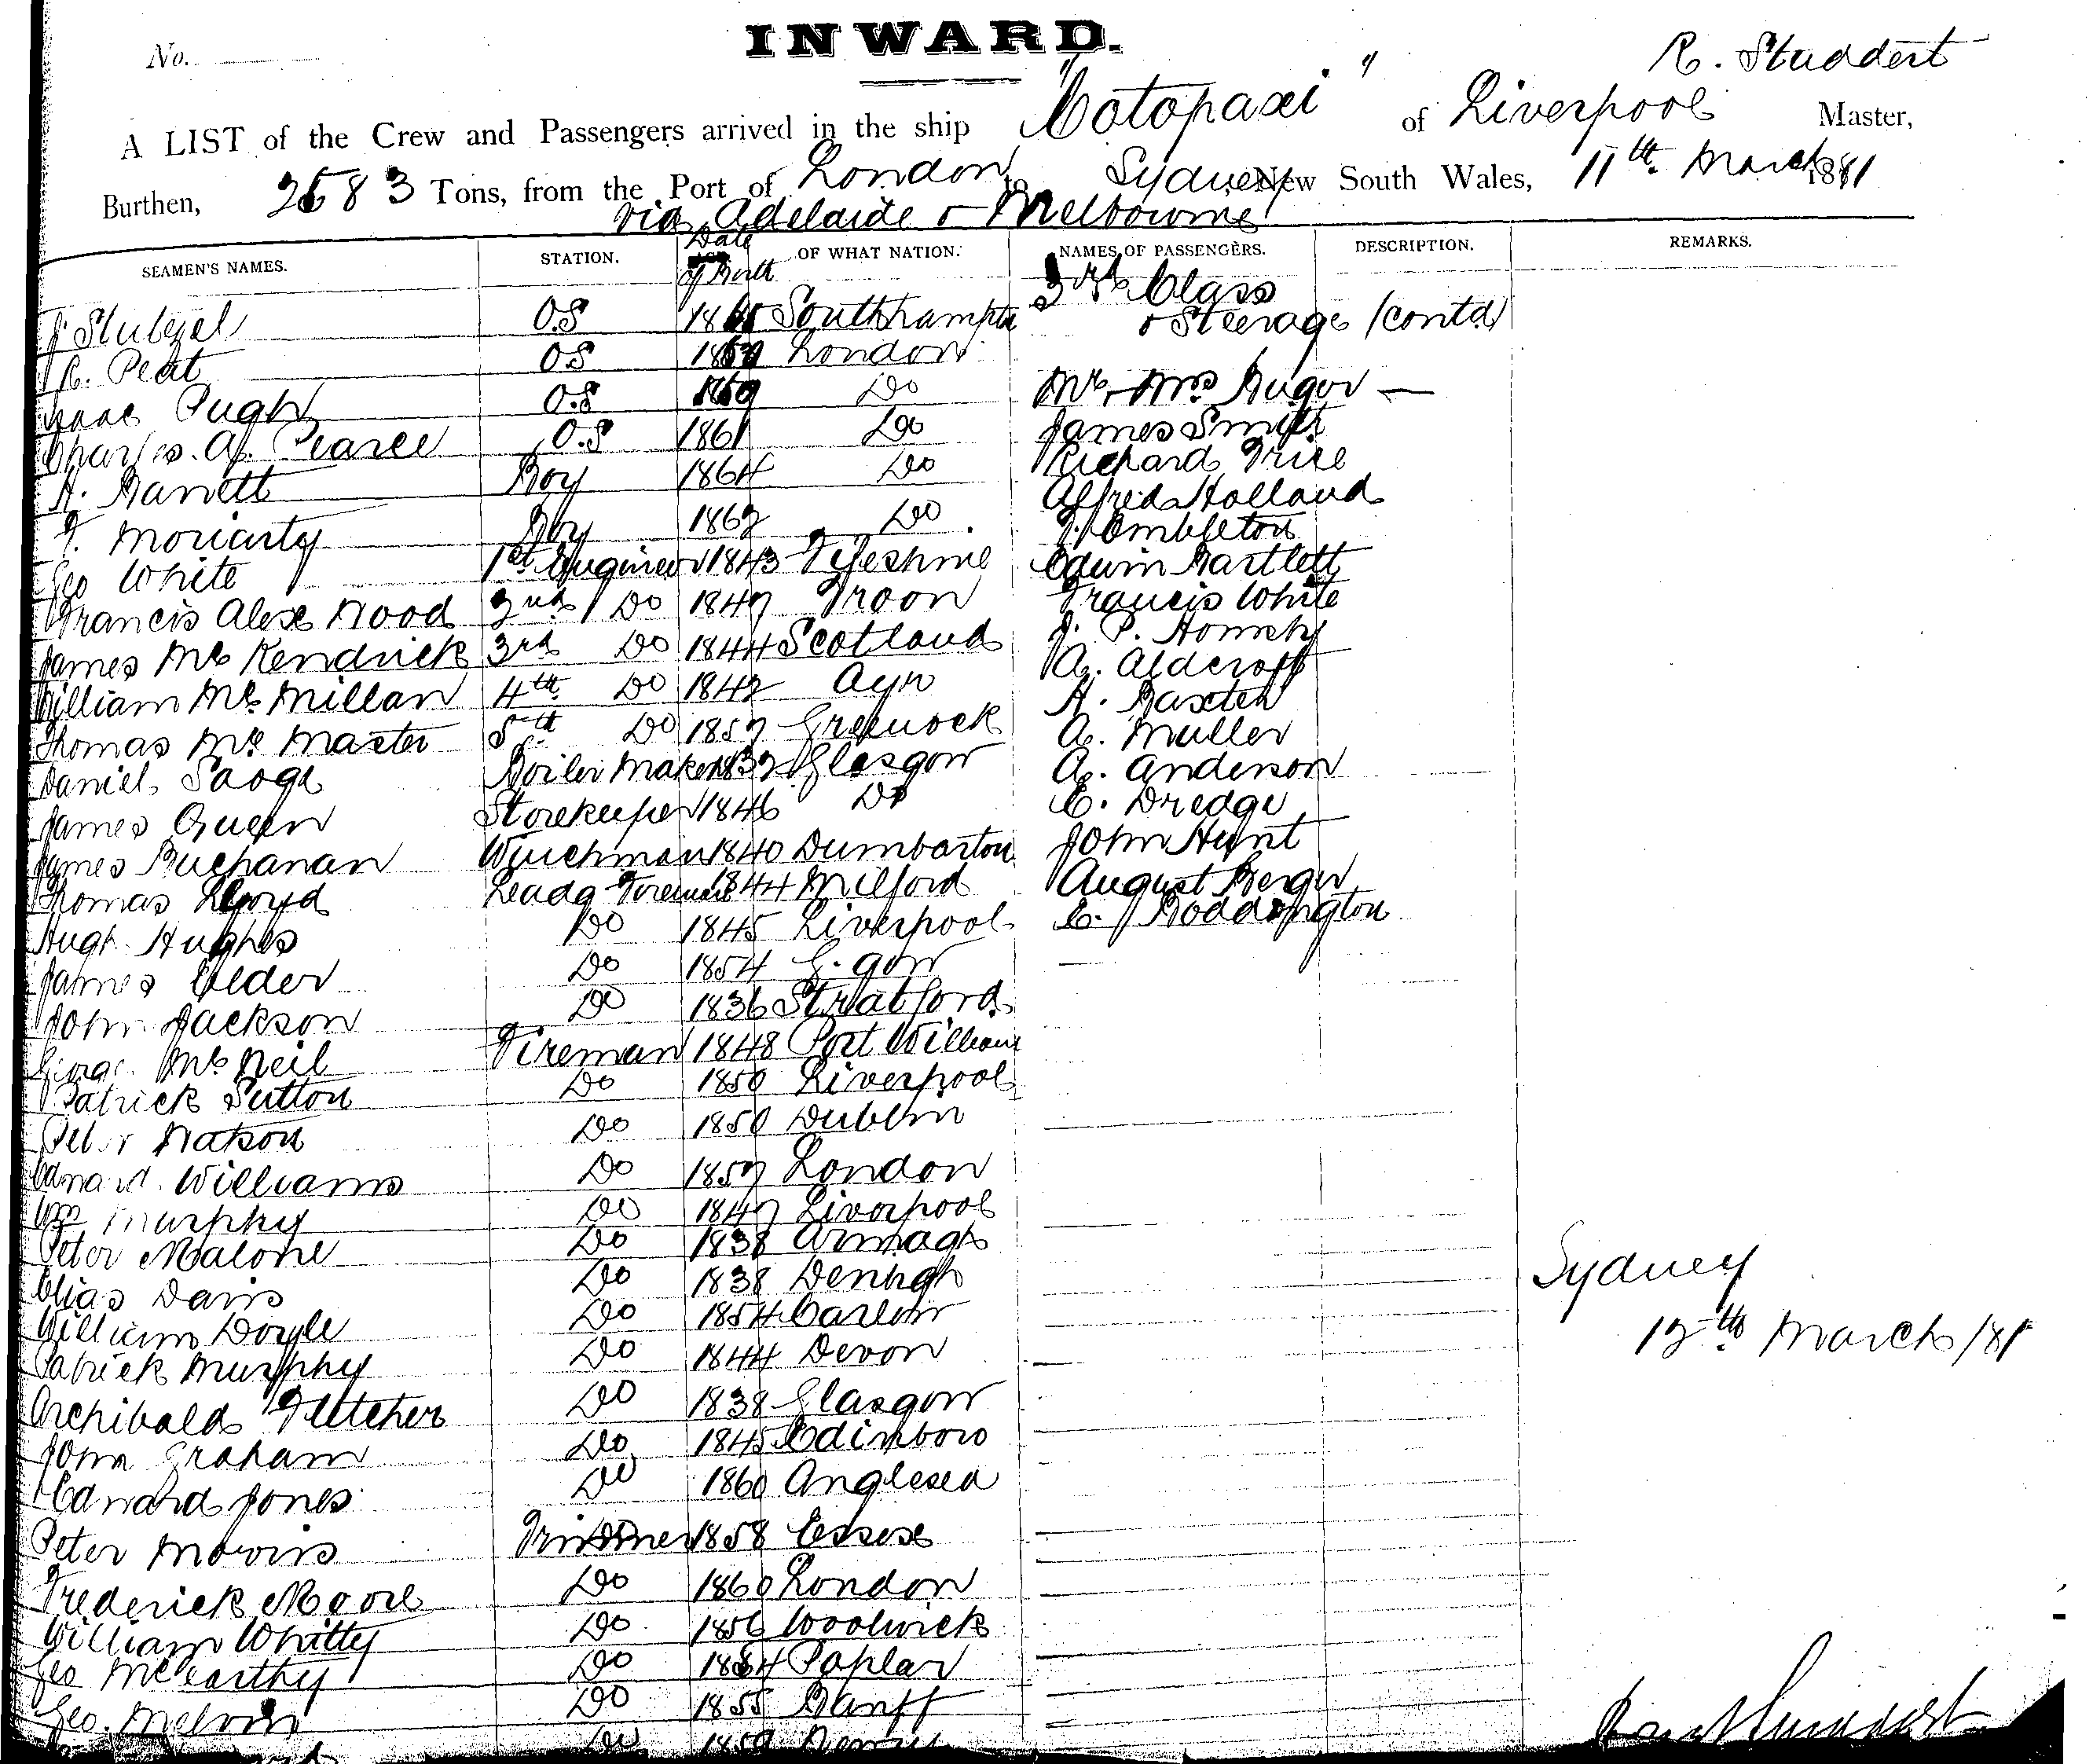 INWARD.
No.
R. Studdert
A LIST of the Crew and Passengers arrived in the ship "Cotopaxi" of Liverpool Master,
Burthen, 2583 Tons, from the Port of London to Sydney New South Wales, 11th March 1881
via Adelaide & Melbourne
SEAMEN'S NAMES. STATION. Date of Birth OF WHAT NATION. NAMES OF PASSENGERS. DESCRIPTION. REMARKS.
3rd Class
O.S Southampton & Steerage (contd)
R. Peat OS London
Isaac Pugh O.S Do Mr. Mrs
Charles A. Pearce O.S 1861 Do James Smith
Boy 1864 Do Richard Price
T. Moriarty Boy 1862 Do Alfred Holland
J. Embleton
Geo White 1st Engineer 1843 Edwin Bartlett
Francis Alex Wood 2nd Do 1847 Troon Francis White
James McKendrick 3rd Do 1844 Scotland J. P.
William McMillan 4th Do 1842 Ayr A. Aldcroft
Thomas McMaster 5th Do 1857 Greenock H. Baxter
A. Muller
Daniel Boiler Maker Glasgow A. Anderson
James Queen Storekeeper 1846 Do E. Dredge
James Buchanan Winchman 1840 Dumbarton John Hunt
Thomas Lloyd Leadg Fireman 1844 Milford August Berger
Hugh Hughes Do 1845 Liverpool E. Boddington
James Elder Do 1854 G.gow
John Jackson Do 1836 Stratford
George McNeil Fireman 1848 Port William
Patrick Sutton Do 1850 Liverpool
Peter Watson Do 1850 Dublin
Edward Williams Do 1857 London
Wm Murphy Do 1847 Liverpool
Peter Malone Do 1838 Armagh
Elias Davis Do 1838 Denbigh
Sydney
William Doyle Do 1854 Carlow
12th March /81
Patrick Murphy Do 1844 Devon
Archibald Fletcher Do 1838 Glasgow
John Graham Do 1845 Edinboro
Edward Jones Do 1860 Anglesea
Peter Morris Trimmer 1858 Essex
Frederick Moore Do 1860 London
William Whitty Do 1856 Woolwich
Geo McCarthy Do Poplar
Geo. Melvin Do 1855 Banff